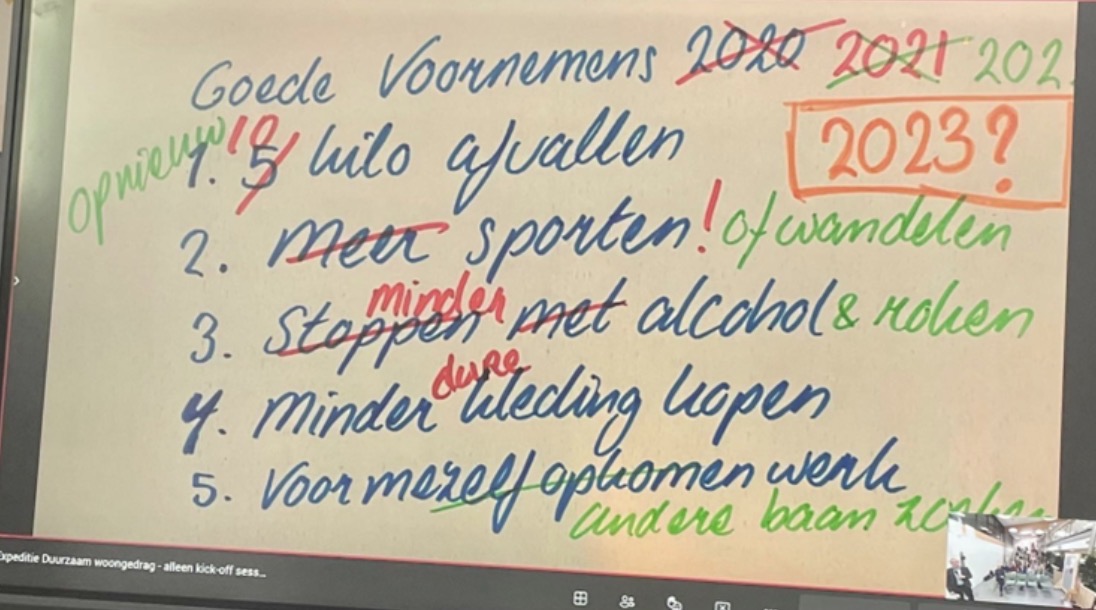 Goede Voornemens 2020 2021 202
2023?
Opnieuw
1. 5 10 kilo afvallen
2. Meer sporten! of wandelen
minder
3. Stoppen met alcohol & roken
dure
4. Minder kleding kopen
5. Voor mezelf opkomen werk
andere baan
Expeditie Duurzaam woongedrag - alleen kick-off sess...